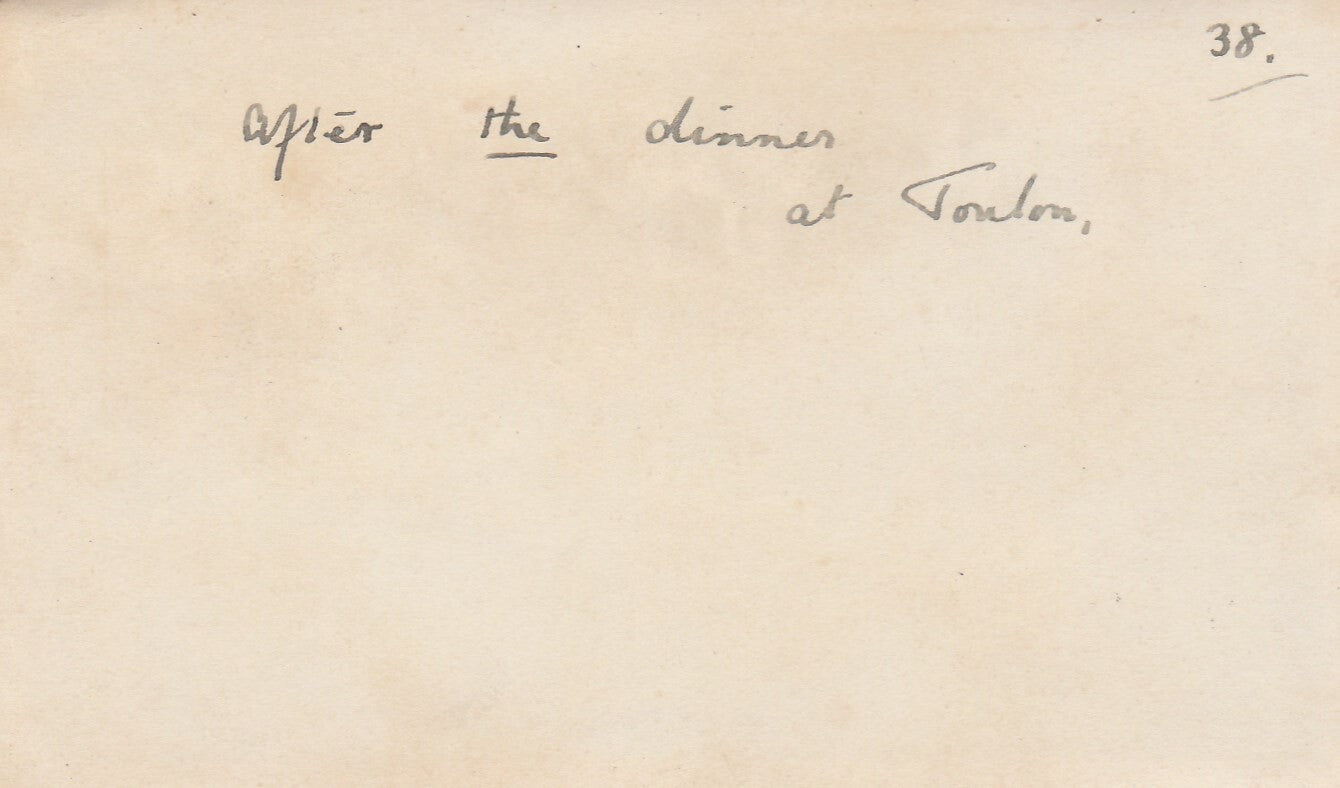 38.
After the dinner
at Toulon,